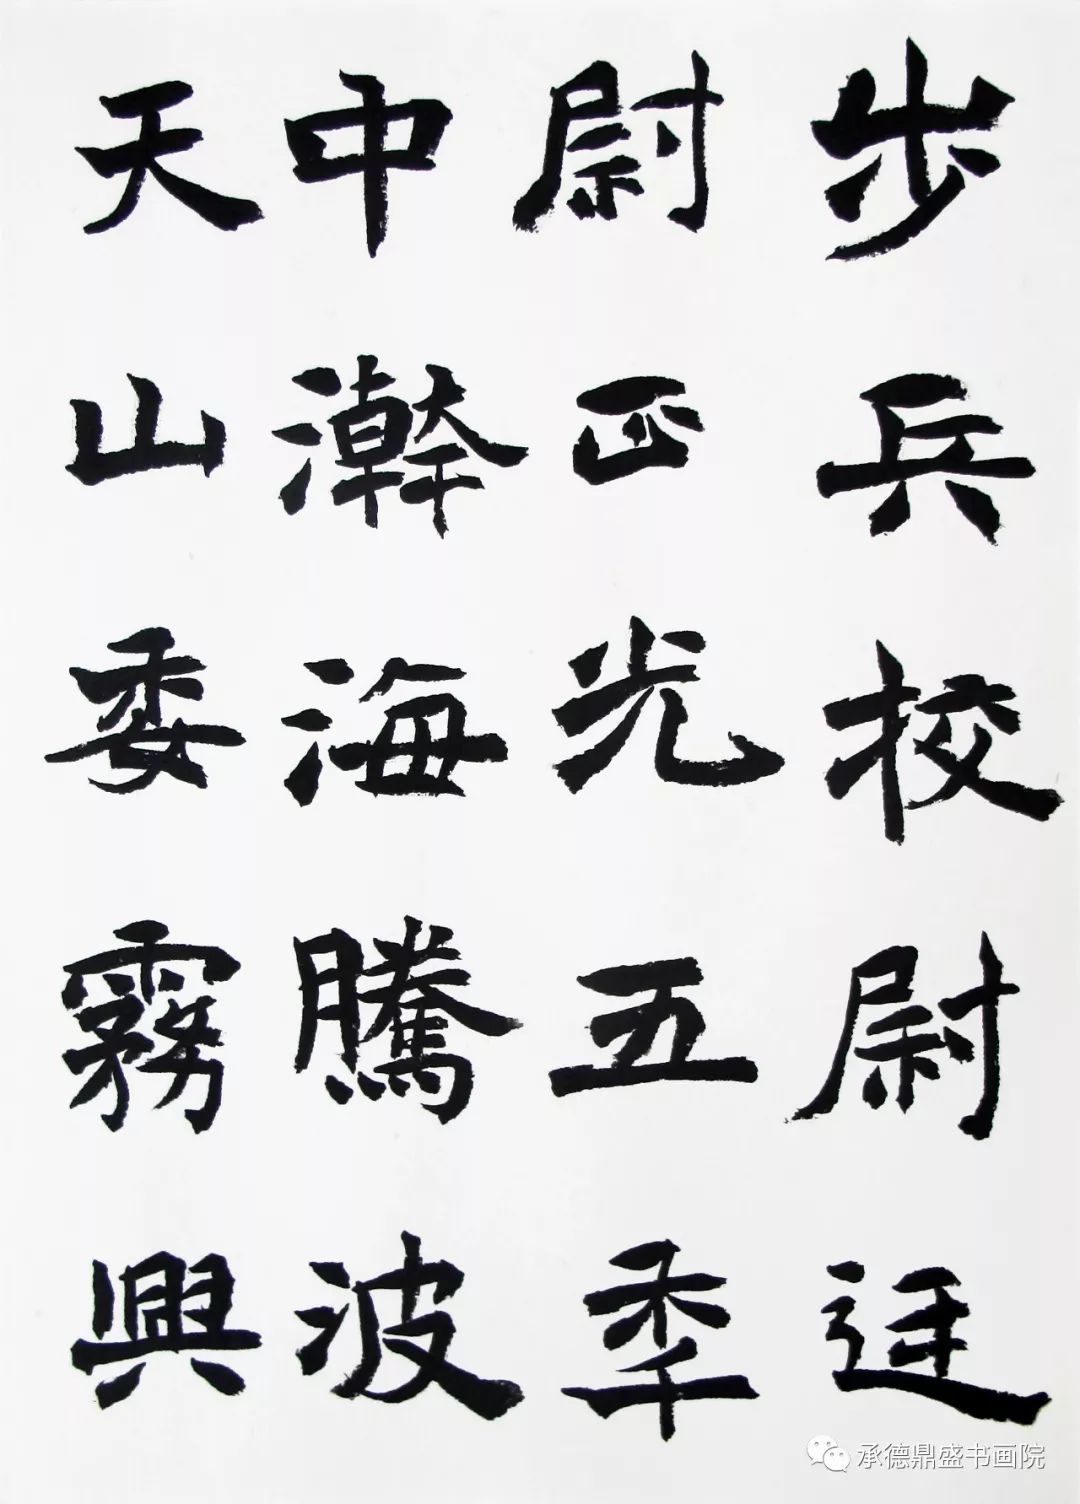 步兵校尉迋
尉正光五秊
中瀚海騰波
天山委霧興
承德鼎盛书画院